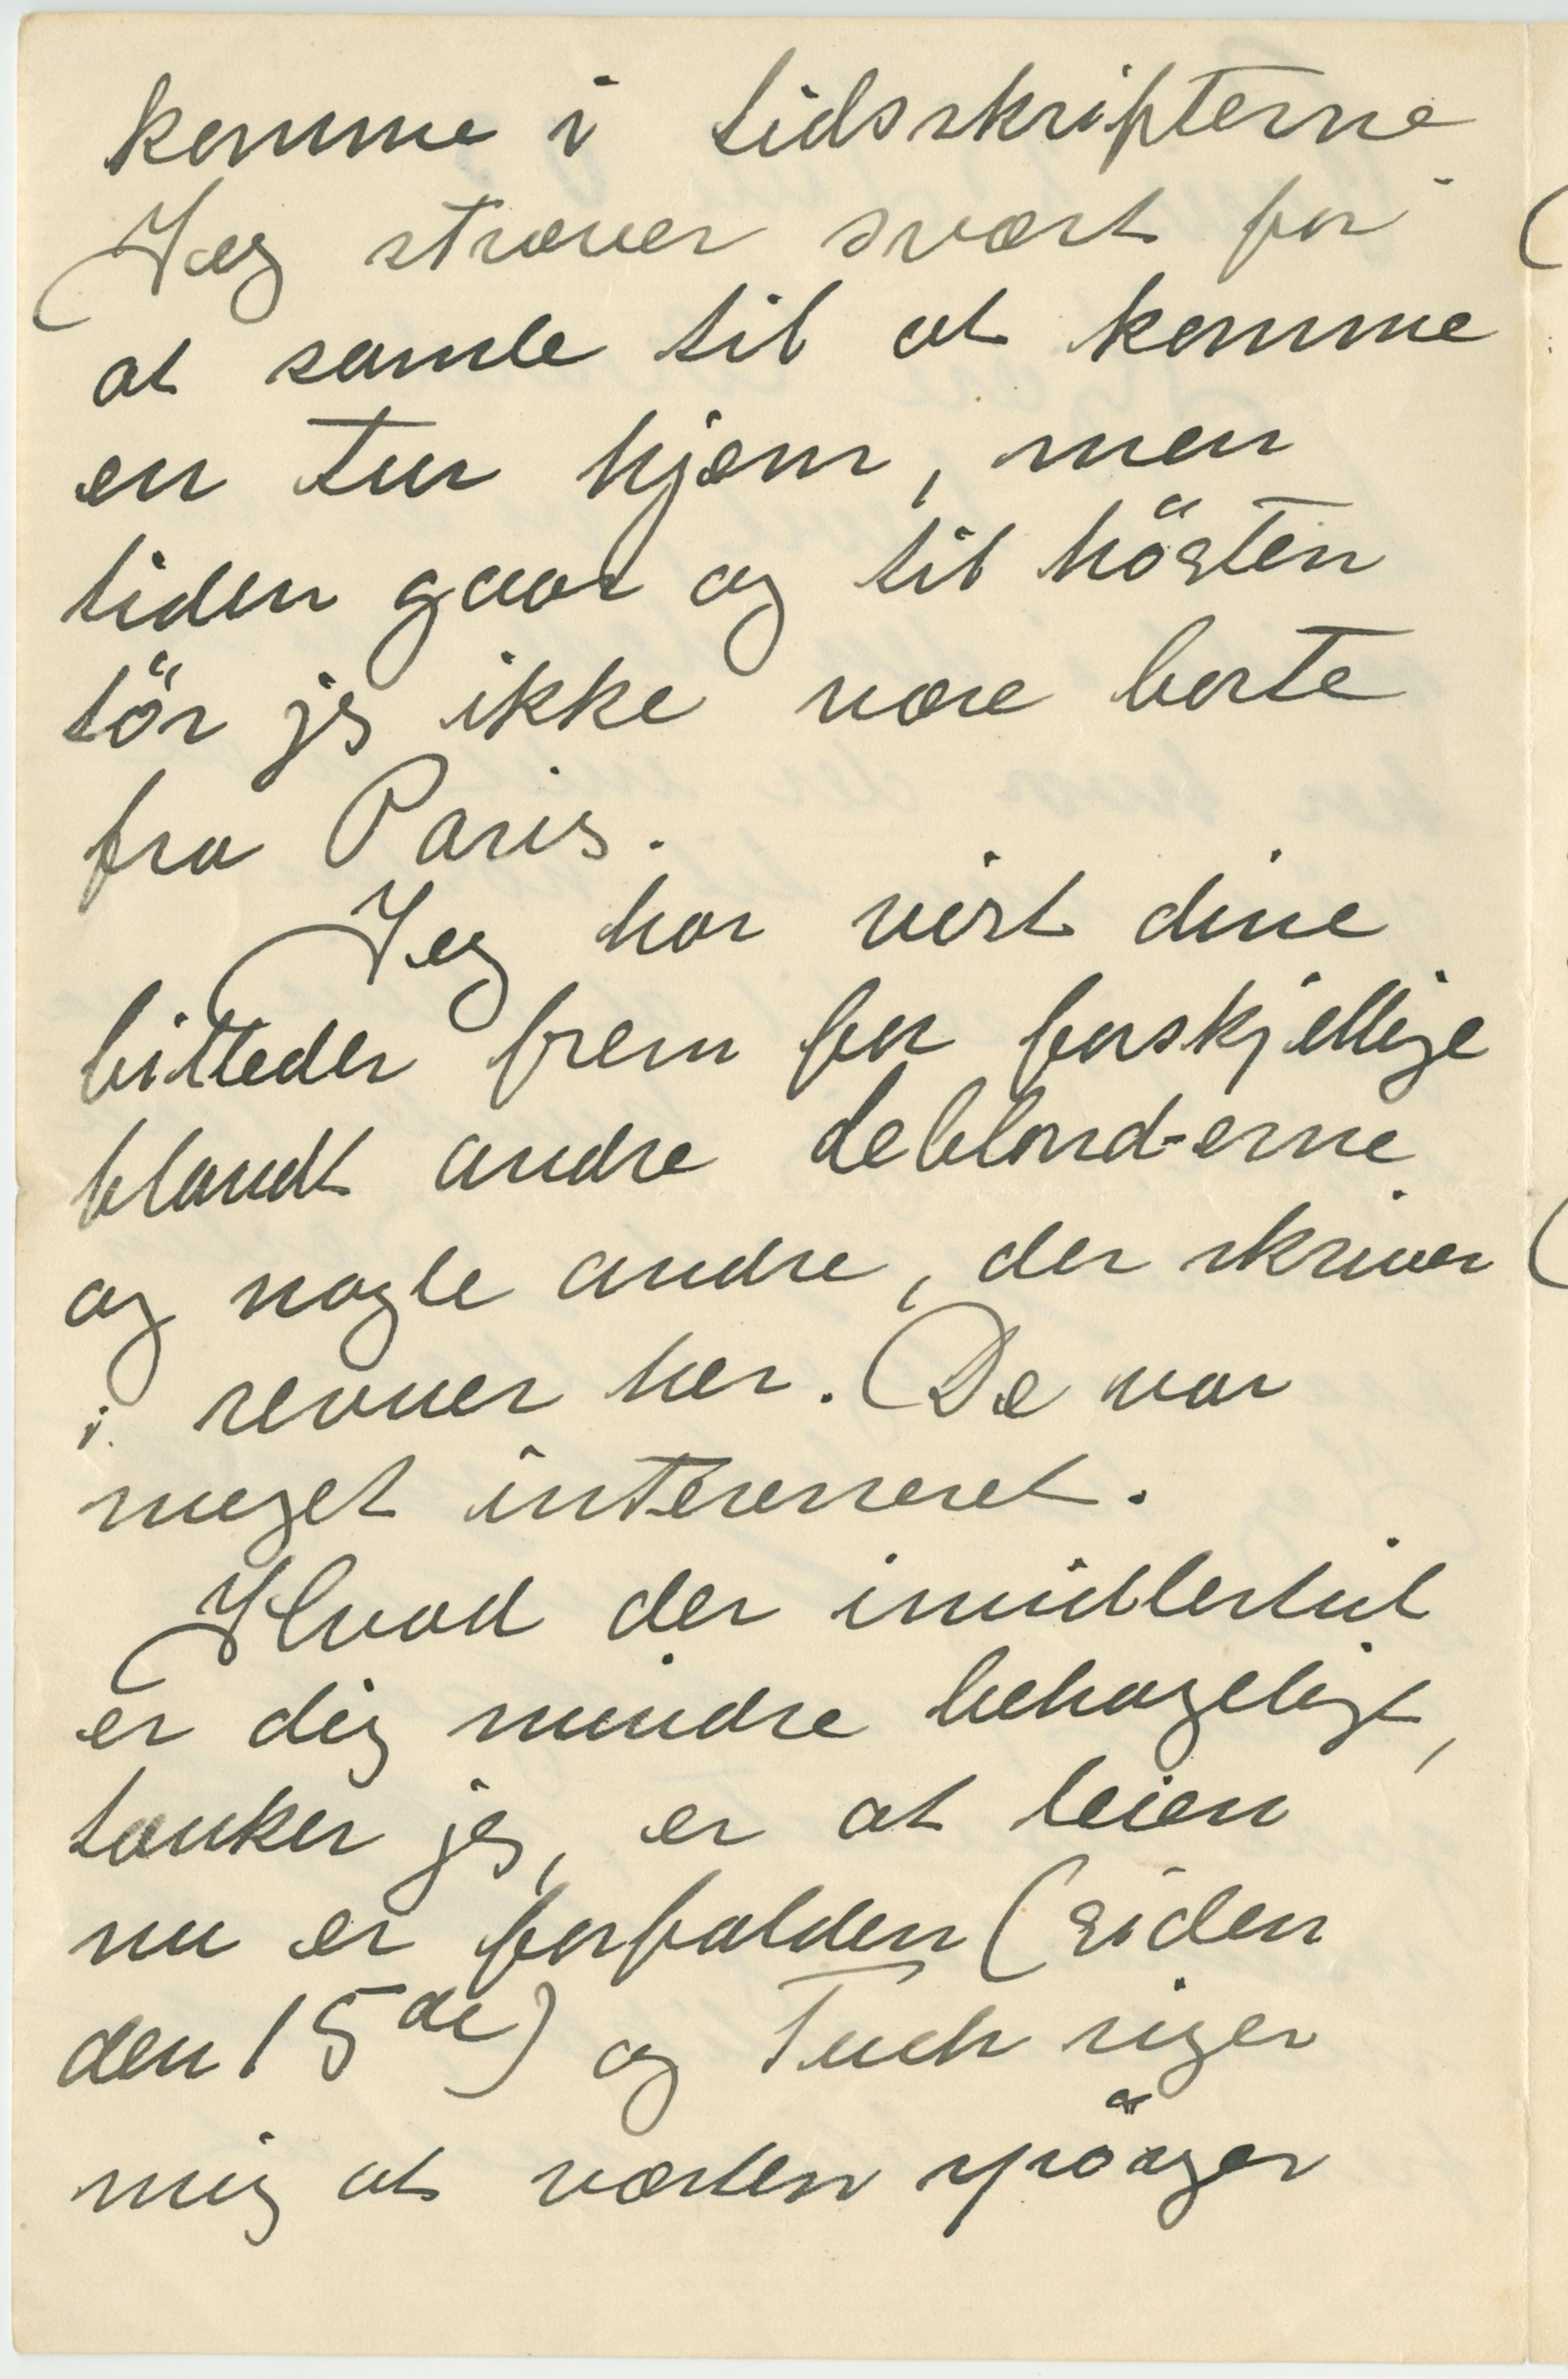 komme i tidsskrifterne
Jeg stræver svært for
at samle til at komme
en tur hjem, men
tiden gaar og til hösten
tör jeg ikke være borte
fra Paris.
Jeg har vist dine
billeder frem for forskjellige
blandt andre leblond-erne
og nogle andre, der skriver
i revuer her. De var
meget interesseret.
Hvad der imidlertid
er dig mindre behageligt,
tænker jeg, er at leien
nu er forfalden (siden
den 15de) og Tuch siger
mig at værten spörger